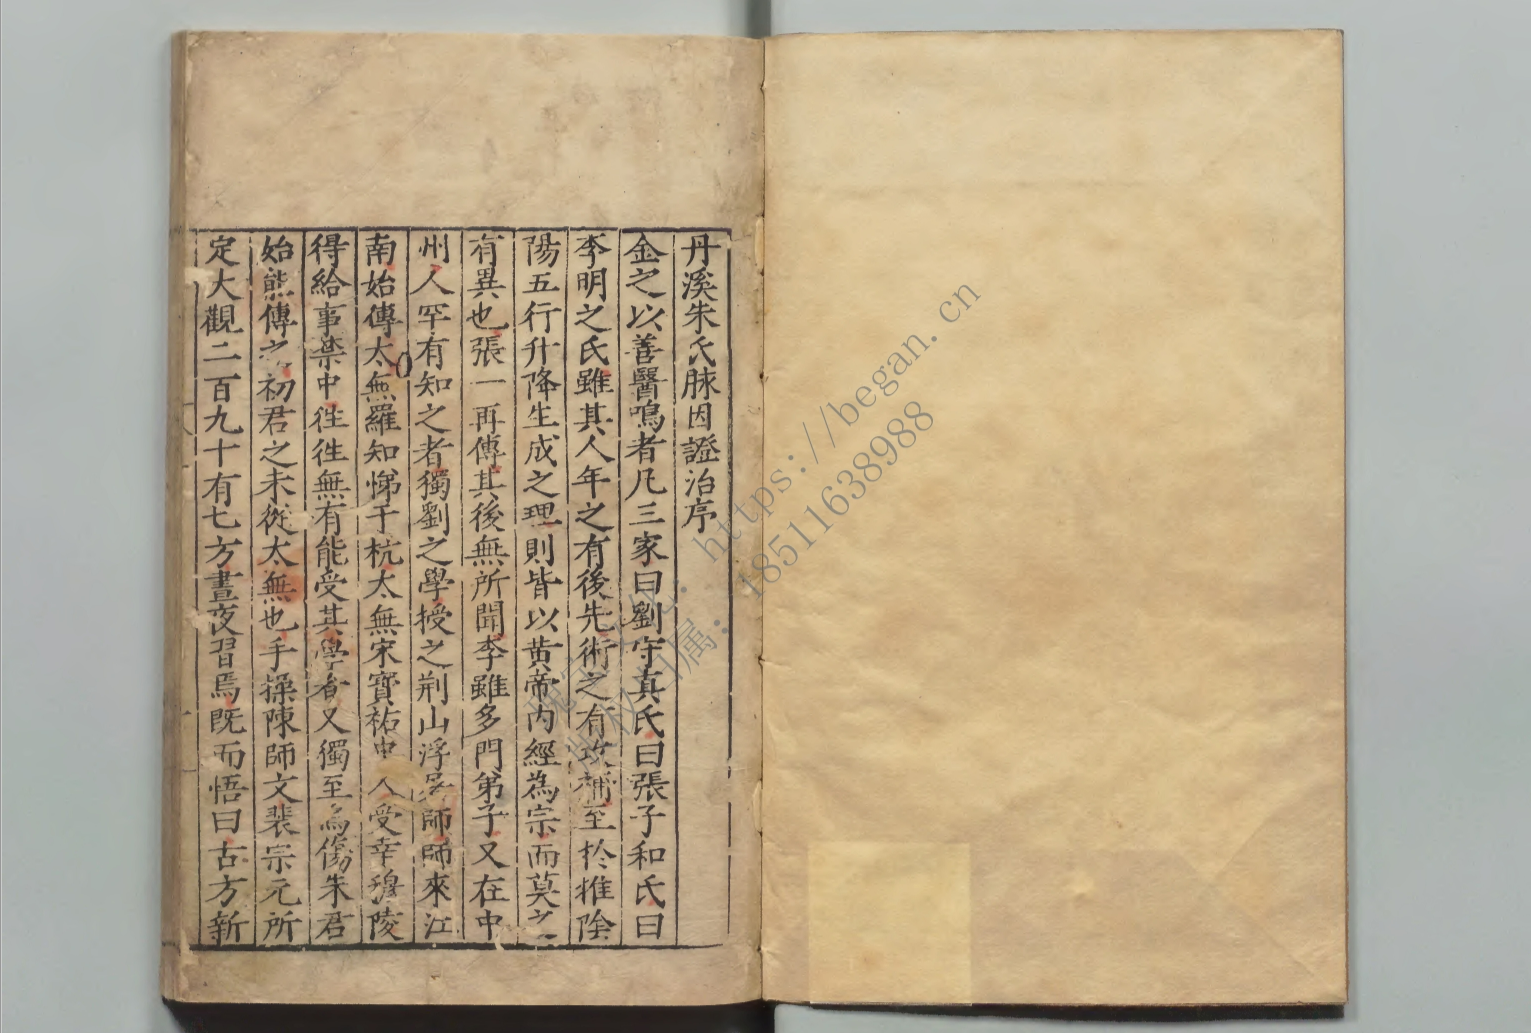 丹溪朱氏脉因證治序
金之以善醫鳴者凡三家曰劉守真氏曰張子和氏曰
李明之氏雖其人年之有後先術之有攻補至於推陰
陽五行升降生成之理則皆以黄帝内經為宗而莫之
有異也張一再傳其後無所聞李雖多門弟子又在中
州人罕有知之者獨劉之學授之荆山浮屠師師來江
南始傳太無羅知悌于杭太無宋寳祐中人受幸穆陵
得給事禁中徃徃無有能受其學者又獨至為傷朱君
始熊傳之初君之未從太無也手操陳師文裴宗元所
定大觀二百九十有七方晝夜習焉既而悟曰古方新
https://began.cn
18511638988